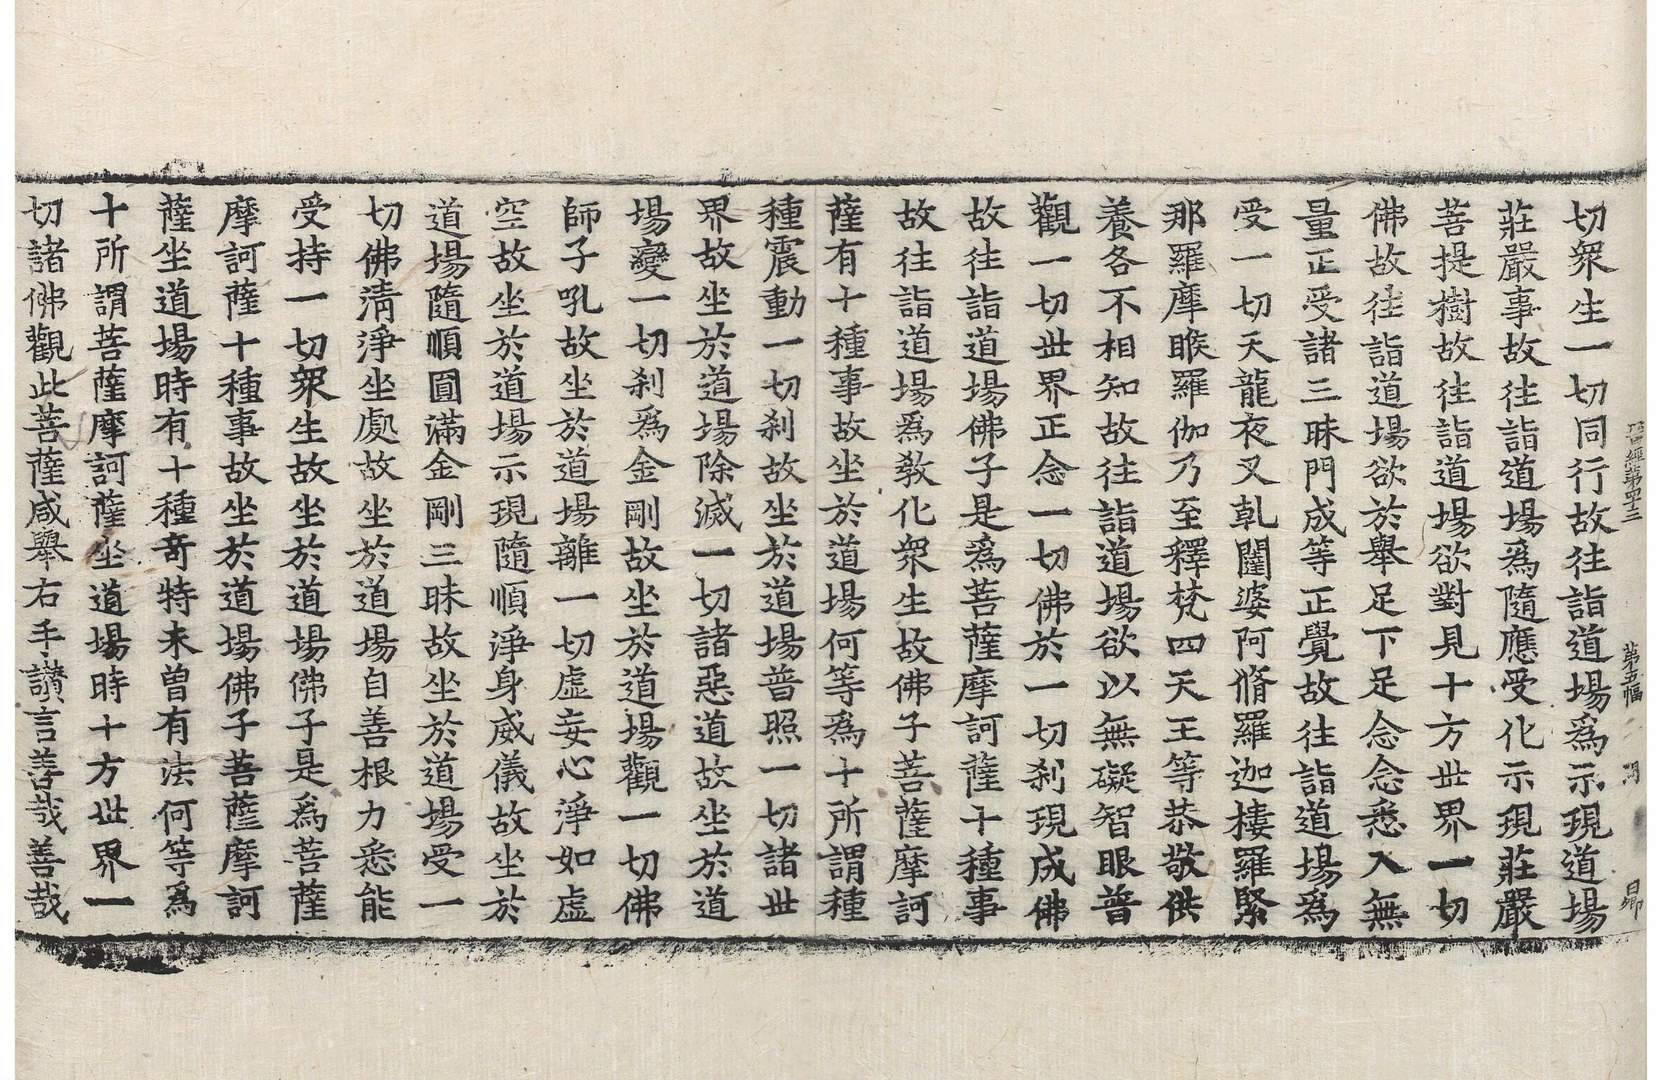 晋經第四十三 第五幅 昂
切衆生一切同行故往詣道場爲示現道場
莊嚴事故往詣道場爲隨應受化示現莊嚴
菩提樹故往詣道場欲對見十方世界一切
佛故往詣道場欲於舉足下足念念悉入無
量正受諸三昧門成等正覺故往詣道場爲
受一切天龍夜叉乹闥婆阿脩羅迦樓羅緊
那羅摩睺羅伽乃至釋梵四天王等恭敬供
養各不相知故往詣道場欲以無礙智眼普
觀一切世界正念一切佛於一切刹現成佛
故往詣道場佛子是爲菩薩摩訶薩十種事
故往詣道場爲敎化衆生故佛子菩薩摩訶
薩有十種事故坐於道場何等爲十所謂種
種震動一切刹故坐於道場普照一切諸世
界故坐於道場除滅一切諸惡道故坐於道
場變一切刹爲金剛故坐於道場觀一切佛
師子吼故坐於道場離一切虛妄心淨如虛
空故坐於道場示現隨順淨身威儀故坐於
道場隨順圓滿金剛三昧故坐於道場受一
切佛清淨坐處故坐於道場自善根力悉能
受持一切衆生故坐於道場佛子是爲菩薩
摩訶薩十種事故坐於道場佛子菩薩摩訶
薩坐道場時有十種奇特未曾有法何等爲
十所謂菩薩摩訶薩坐道場時十方世界一
切諸佛觀此菩薩咸舉右手讃言善哉善哉